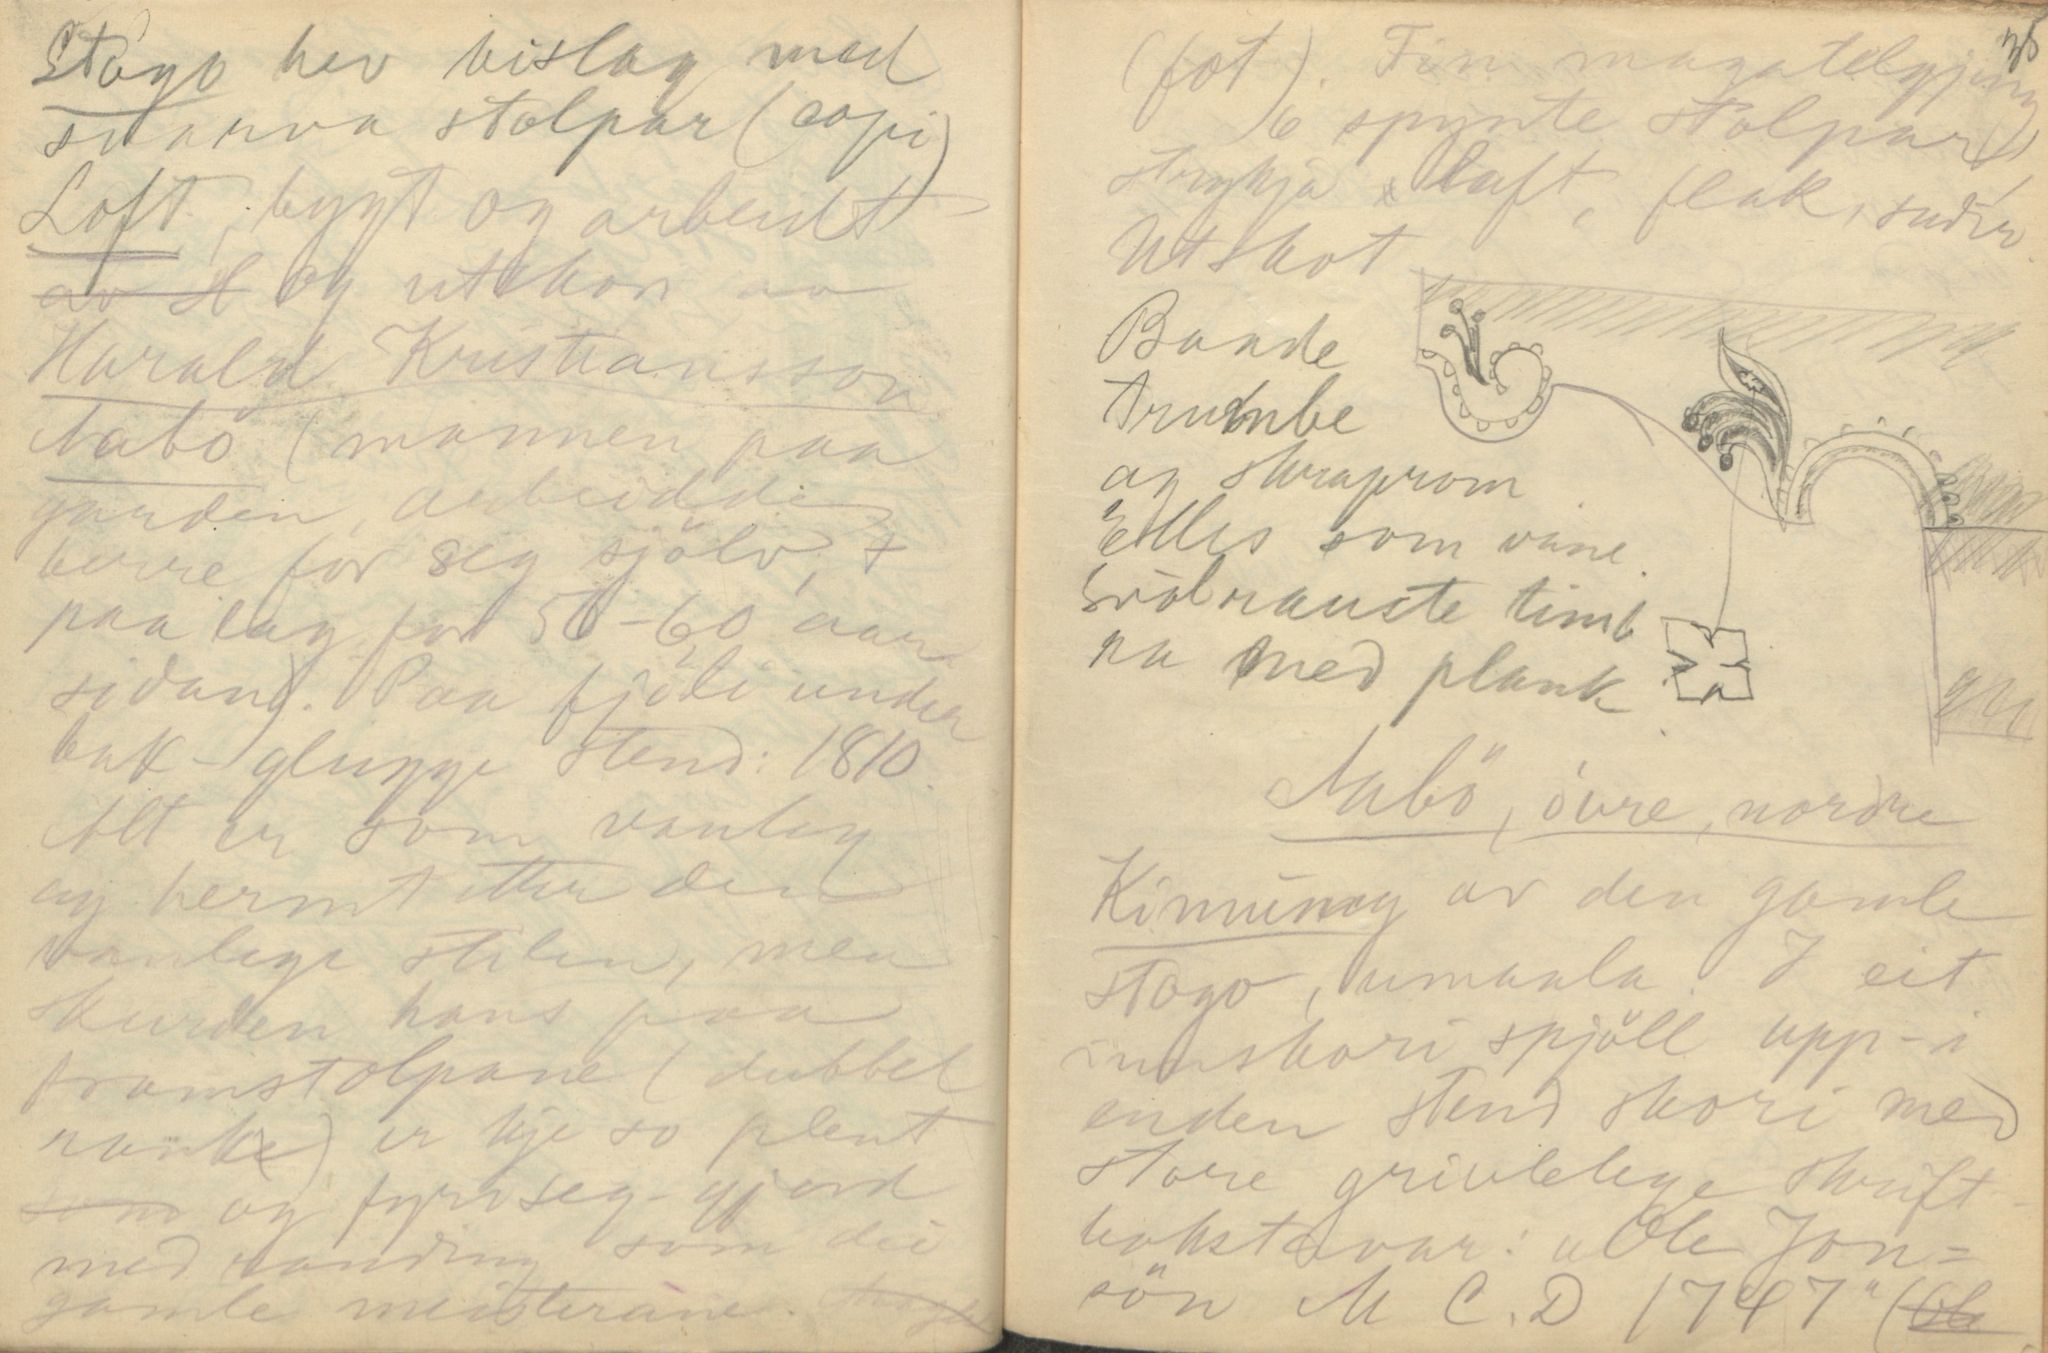 Stogo hev bislag med
svarva stolpar (copi)
Loft, bygt og arbeidt
av H og utskori av
Harald Kristiansson
Aabö (mannen paa
garden, arbeidde
berre for seg sjölv, +
paa lag for 50-60 aar
sidan). Paa fjöli under
bak-glugge stend: 1810.
Alt er som vanleg
og hermt etter den
vanlege stilen, men
skurden hans paa
framstolpane (dubbel
ranke) er kje so plent
som og fyreseg-gjord
med vanding som dei
gamle meisterane.
35
(fot). Fin
6 spynte stolpar),
strykja laft, flak,
Utskot
Bande
trumbe
og skraprom
Elles som vane.
Svalrauste timb
ra med plank
Aabö, övre, nordre
Kinning av den gamle
stogo, umaala. I eit
innskori spjöll upp-i
enden stend skori med
store grivlelege skrift-
bokstavar: "Ole Jon=
sön M C. D 1747" (Ole